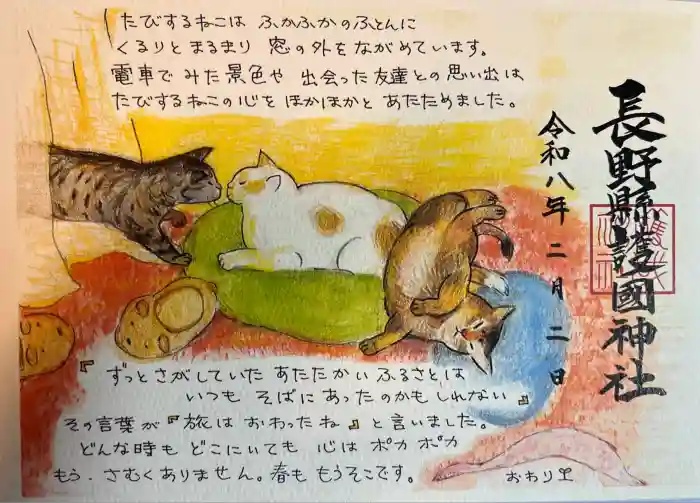 たびするねこは ふかふかのふとんに
くるりと まるまり 窓の外をながめています。
電車で みた景色や 出会った友達との思い出は
たびするねこの心を ほかほかと あたためました。
長野縣護國神社
令和八年 二月 二日
『ずっとさがしていた あたたかい ふるさとは
いつも そばにあったのかもしれない』
その言葉が『旅は おわったね』と言いました。
どんな時も どこにいても 心は ポカポカ
もう、さむくありません。春も もうそこです。
おわり